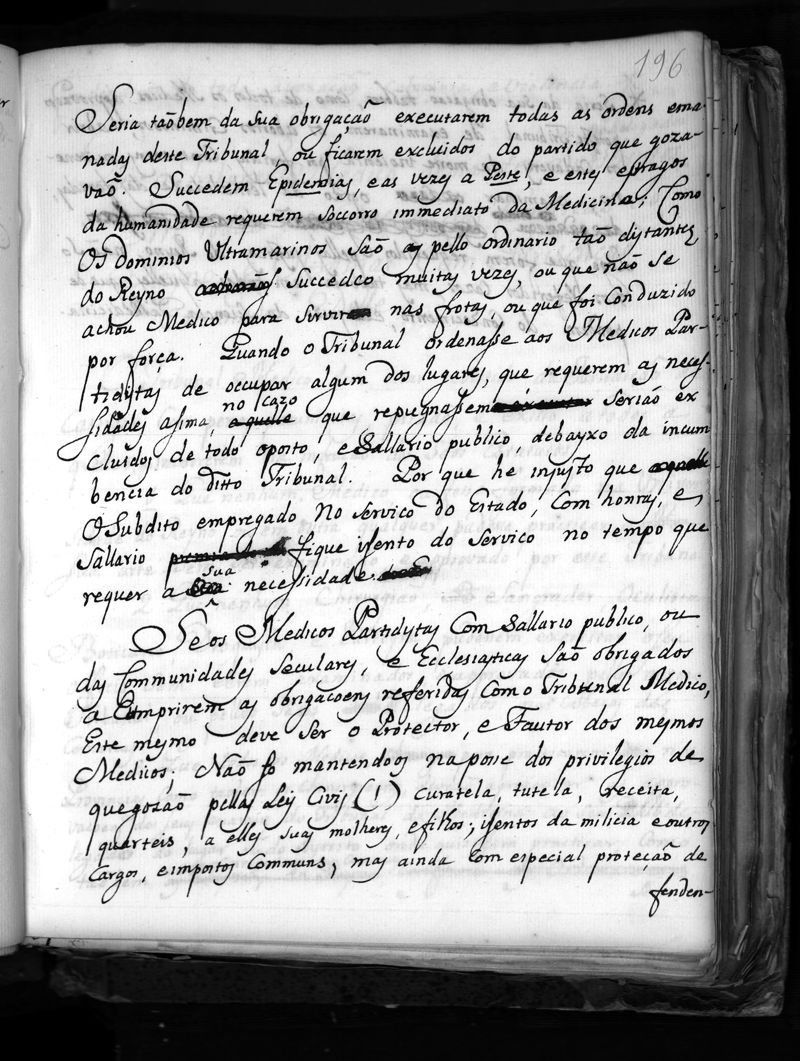 196
Seria taõbem da sua obrigaçaõ executarem todas as ordens ema-
nadas deste Tribunal, ou ficarem excluidos do partido que goza-
vaõ. Succedem Epidemias, e as vezes a Peste, e estes estragos
da humanidade requerem socorro immediato da Medicina; Como
Os dominios Ultramarinos saõ as pello ordinario taõ distantes
do Reyno succedeo muitas vezes, ou que naõ se
achou Medico para survir nas frotas, ou que foi Conduzido
por força. Quando o Tribunal ordenasse aos Medicos Par-
tidistas de occupar algum dos lugares, que requerem as neces-
sidades asima, no cazo aquelle que repugnassem seriaõ ex
clusos de todo oposto, e Sallario publico, debayxo da incum
bencia do ditto Tribunal. Por que he injusto que aquelle
O Subdito empregado no Servico do Estado, Com honras, e
Sallario fique isento do Servico no tempo que
requer a sua necessidade.
Se os Medicos Partidistas Com Sallario publico, ou
das Communidades Seculares, e Ecclesiasticas saõ obrigados
a Comprirem as obrigacoens referidas Com o Tribunal Medico,
Este mesmo deve ser o Protector, e Fautor dos mesmos
Medicos; Naõ so mantendoos na posse dos privilegios de
que gosaõ pellas Leis Civis (1) curatela, tutela, receita,
quarteis, a elles suas molheres, e filhos; isentos da milicia e outros
Cargos, e impostos Communs, mas ainda Com especial proteçaõ de
fenden-